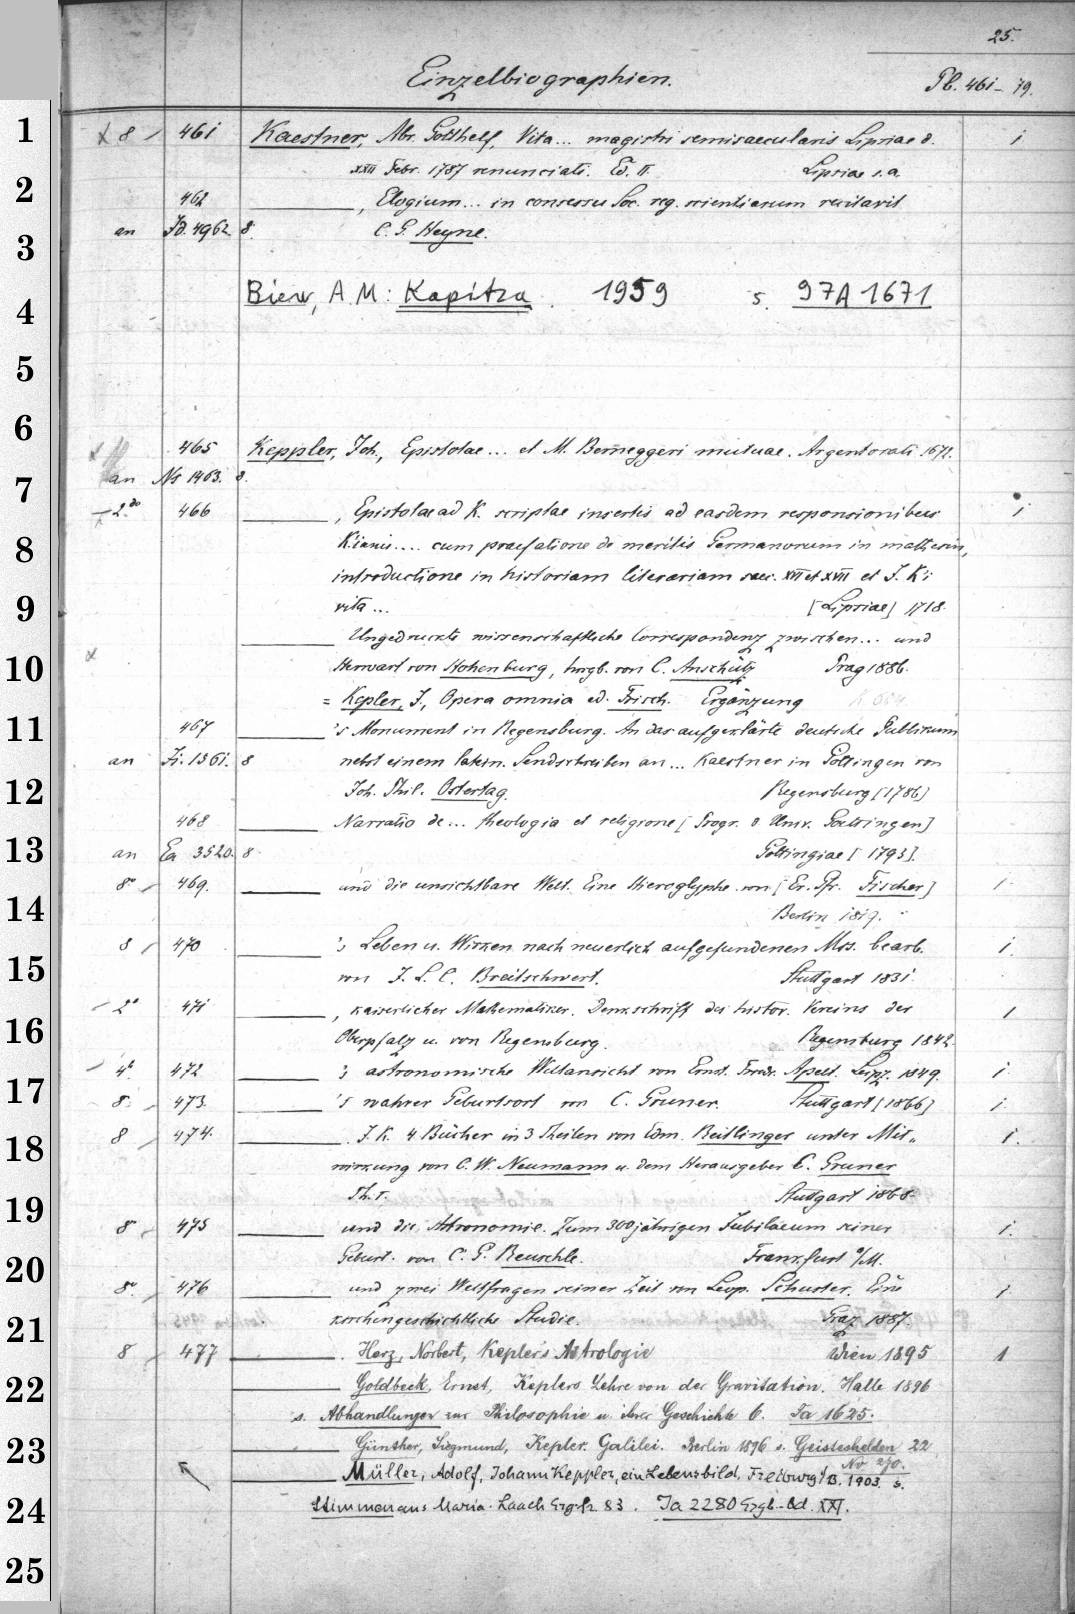 25.
Einzelbiographien. Pb. 461-79.
8 461 Kaestner, Abr. Gotthelf, Vita... magistri semisaecularis Lipsiae d. 1
XXII Febr. 1787 renunciati. Ed. II. Lipsiae s.a.
462 , Elogium... in consessu Soc. reg. scientiarum recitavit
an Jd. 4962. 8. C. G. Heyne.
Biew, A.M: Kapitza. 1959 s. 97A1671
465 Keppler, Joh., Epistolae... et M. Berneggeri mutuae. Argentorati. 1672.
an Ns 1463. 8.
2do 466 , Epistolae ad K. scriptae insertis ad easdem responsionibus 1
K.ianis.... cum praefatione de meritis Germanorum in mathesin,
introductione in historiam literariam saec. XVI et XVII et J. K.i
vita... [Lipsiae] 1718.
Ungedruckte wissenschaftliche Correspondenz zwischen... und
Herwart von Hohenburg, hrsgb. von C. Anschütz Prag 1886.
= Kepler, J., Opera omnia ed. Frisch. Ergänzung
467 's Monument in Regensburg. An das aufgeklärte deutsche Publicum
an 1361. 8 nebst einem latein. Sendschreiben an... Kaestner in Göttingen von
Joh. Phil. Ostertag. Regensburg [1786]
468 Narratio de... theologia et religione [Progr. d. Univ. Goettingen]
an Ea 3520. 8. Göttingae [1793].
8° 469. und die unsichtbare Welt. Eine Hieroglyphe von [Er. Fr. Fischer] 1
Berlin 1819.
8 470 's Leben u. Wirken nach neuerlich aufgefundenen Mss. bearb. 1.
von J. L. C. Breitschwert. Stuttgart 1831.
2° 471 , kaiserlicher Mathematiker. Denkschrift des histor. Vereins der 1
Oberpfalz u. von Regensburg. Regensburg 1842.
4° 472 's astronomische Weltansicht von Ernst. Friedr. Apelt. Leipz. 1849. 1
8 473. 's wahrer Geburtsort von C. Gruner. Stuttgart [1866] 1.
8 474. . J. K. 4 Bücher in 3 Theilen von Edm. Reitlinger unter Mit- 1.
wirkung von C. W. Neumann u. dem Herausgeber C. Gruner
Th. I. Stuttgart 1868.
8° 475 und die Astronomie. Zum 300jährigen Jubilaeum seiner 1.
Geburt. von C. G. Reuschle. Frankfurt a/M.
8° 476 und zwei Weltfragen seiner Zeit von Leop. Schuster. Eine 1
kirchengeschichtliche Studie. Graz 1887.
8 477 . Herz, Norbert, Keplers Astrologie Wien 1895 1
Goldbeck, Ernst, Keplers Lehre von der Gravitation. Halle 1896
s. Abhandlungen zur Philosophie u. ihrer Geschichte 6. Ja 1625.
Günther, Siegmund, Kepler. Galilei. Berlin 1896 s. Geisteshelden 22
No 270.
Müller, Adolf, Johann Keppler, ein Lebensbild, Freiburg i/B. 1903. s.
Stimmen aus Maria-Laach Erg.h. 83. Ja 2280 Ergb.-bd. XXI.
1
2
3
4
5
6
7
8
9
10
11
12
13
14
15
16
17
18
19
20
21
22
23
24
25